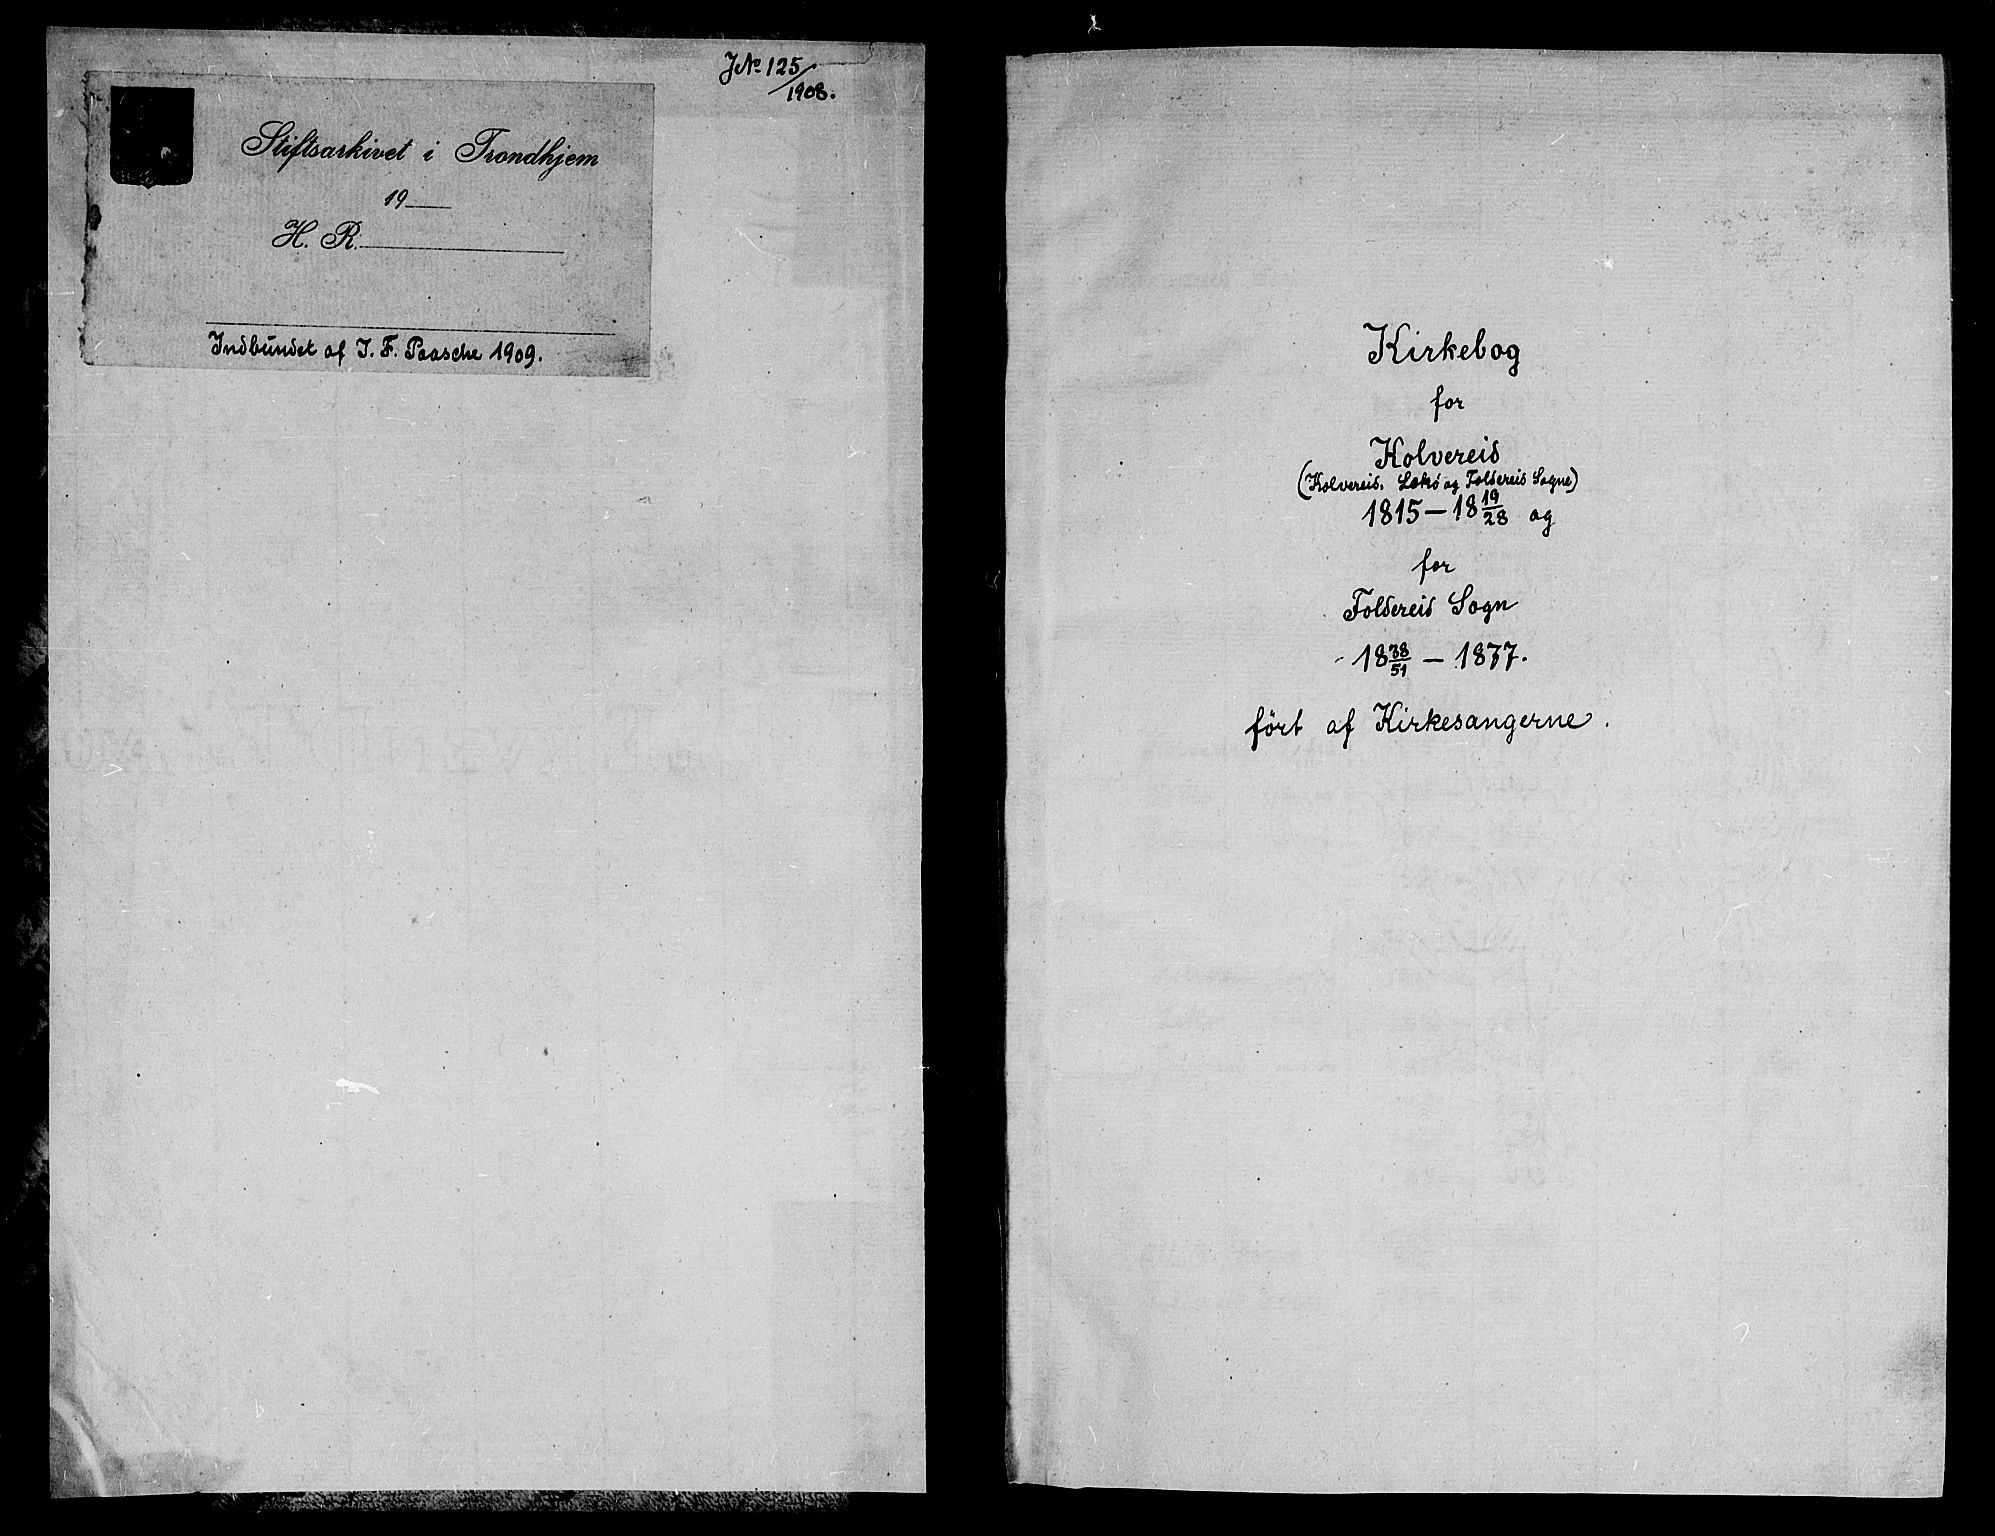 JNo 125/1908.
Stiftsarkivet i Trondhjem
19
H. R.
Indbundet af I. F. Paasche 1909.
Kirkebog
for
Kolvereid
(Kolvereid. Lekö og Foldereid Sogne)
1815 — 18 19/28 og
for
Foldereid Sogn
18 38/51 — 1877.
fört af Kirkesangerne.